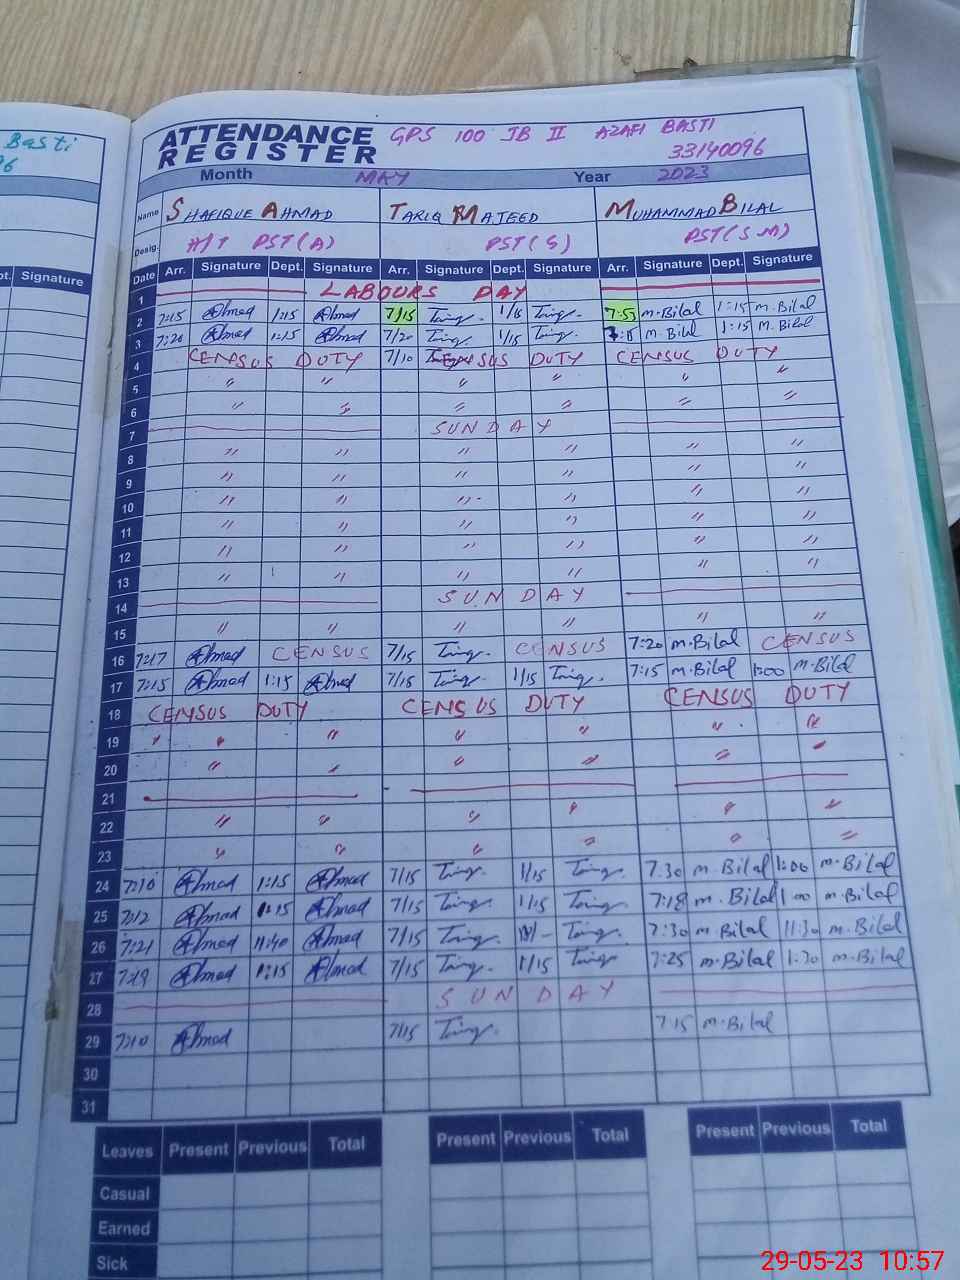 Basti
ATTENDANCE REGISTER GPS 100 JB II AZAFI BASTI
33140096
Month MAY Year 2023
Name SHAFIQUE AHMAD TARIQ MAJEED MUHAMMAD BILAL
Desig. H/T PST(A) PST(S) PST(S.M)
pt. Signature
Date Arr. Signature Dept. Signature Arr. Signature Dept. Signature Arr. Signature Dept. Signature
1 LABOURS DAY
2 7:15 Ahmad 1:15 Ahmad 7/15 Tariq. 1/15 Tariq. 7:53 m.Bilal 1:15 m.Bilal
3 7:20 Ahmad 1:15 Ahmad 7/20 Tariq. 1/15 Tariq. m.Bilal 1:15 m.Bilal
4 CENSUS DUTY 7/10 CENSUS DUTY CENSUS DUTY
5 " " " " " "
6 " " " " " "
7 SUNDAY
8 " " " " " "
9 " " " " " "
10 " " " " " "
11 " " " " " "
12 " " " " " "
13 " " " " " "
14 SUNDAY
15 " " " " " "
16 7:17 Ahmad CENSUS 7/15 Tariq. CENSUS 7:20 m.Bilal CENSUS
17 7:15 Ahmad 1:15 Ahmad 7/15 Tariq. 1/15 Tariq. 7:15 m.Bilal 1:00 m.Bilal
18 CENSUS DUTY CENSUS DUTY CENSUS DUTY
19 " " " " " " "
20 " " " " " "
21
22 " " " " " "
23 " " " " " "
24 7:10 Ahmad 1:15 Ahmad 7/15 Tariq. 1/15 Tariq. 7:30 m.Bilal 1:00 m.Bilal
25 7:12 Ahmad 1:15 Ahmad 7/15 Tariq. 1/15 Tariq. 7:18 m.Bilal 1:00 m.Bilal
26 7:21 Ahmad 11:40 Ahmad 7/15 Tariq. Tariq. 7:30 m.Bilal 11:30 m.Bilal
27 7:19 Ahmad 1:15 Ahmad 7/15 Tariq. 1/15 Tariq 7:25 m.Bilal 1:30 m.Bilal
28 SUNDAY
29 7:10 Ahmad 7/15 Tariq. 7:15 m.Bilal
30
31
Leaves Present Previous Total Present Previous Total Present Previous Total
Casual
Earned
Sick
29-05-23 10:57